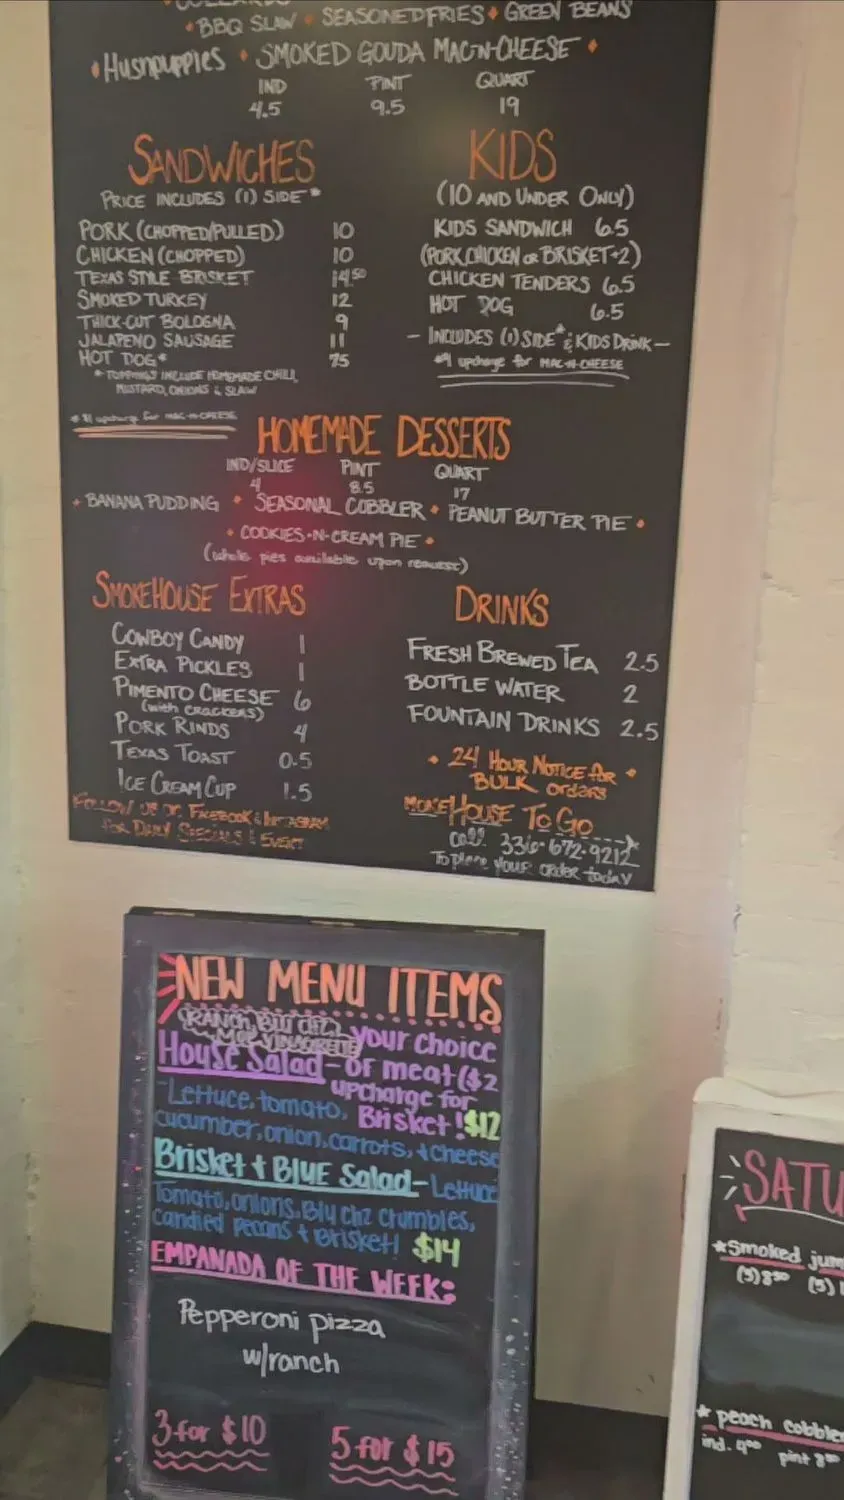 BBQ SLAW • SEASONED FRIES • GREEN BEANS
• Hushpuppies • SMOKED GOUDA MAC-N-CHEESE •
IND PINT QUART
4.5 9.5 19
SANDWICHES
PRICE INCLUDES (1) SIDE*
PORK (CHOPPED/PULLED) 10
CHICKEN (CHOPPED) 10
TEXAS STYLE BRISKET 14.50
SMOKED TURKEY 12
THICK-CUT BOLOGNA 9
JALAPENO SAUSAGE 11
HOT DOG* 7.5
*TOPPINGS INCLUDE HOMEMADE CHILI,
MUSTARD, ONIONS & SLAW
*$1 upcharge for MAC-N-CHEESE
KIDS
(10 AND UNDER ONLY)
KIDS SANDWICH 6.5
(PORK, CHICKEN OR BRISKET+2)
CHICKEN TENDERS 6.5
HOT DOG 6.5
- INCLUDES (1) SIDE* & KIDS DRINK -
*$1 upcharge for MAC-N-CHEESE
HOMEMADE DESSERTS
IND/SLICE PINT QUART
4 8.5 17
• BANANA PUDDING • SEASONAL COBBLER • PEANUT BUTTER PIE •
• COOKIES-N-CREAM PIE •
(whole pies available upon request)
SMOKEHOUSE EXTRAS
COWBOY CANDY 1
EXTRA PICKLES 1
PIMENTO CHEESE 6
(with crackers)
PORK RINDS 4
TEXAS TOAST 0.5
ICE CREAM CUP 1.5
FOLLOW US ON FACEBOOK & INSTAGRAM
FOR DAILY SPECIALS & EVENT
DRINKS
FRESH BREWED TEA 2.5
BOTTLE WATER 2
FOUNTAIN DRINKS 2.5
• 24 HOUR NOTICE for •
BULK orders
MOKEHOUSE TO GO
Call 336-672-9212
To place YOUR order today
NEW MENU ITEMS
RANCH, BLU CHZ,
VINAGRETTE
House Salad - your choice
of meat ($2
upcharge for
Brisket! $12
-Lettuce, tomato,
cucumber, onion, carrots, + cheese
Brisket + BLUE Salad - Lettuce
Tomato, onions, Blu chz crumbles,
candied pecans + Brisket! $14
EMPANADA OF THE WEEK:
Pepperoni pizza
w/ranch
3 for $10 5 for $15
SATU
*Smoked jum
(3) 8.50 (5) 1
* peach cobbler
ind. 4.00 pint 8.50